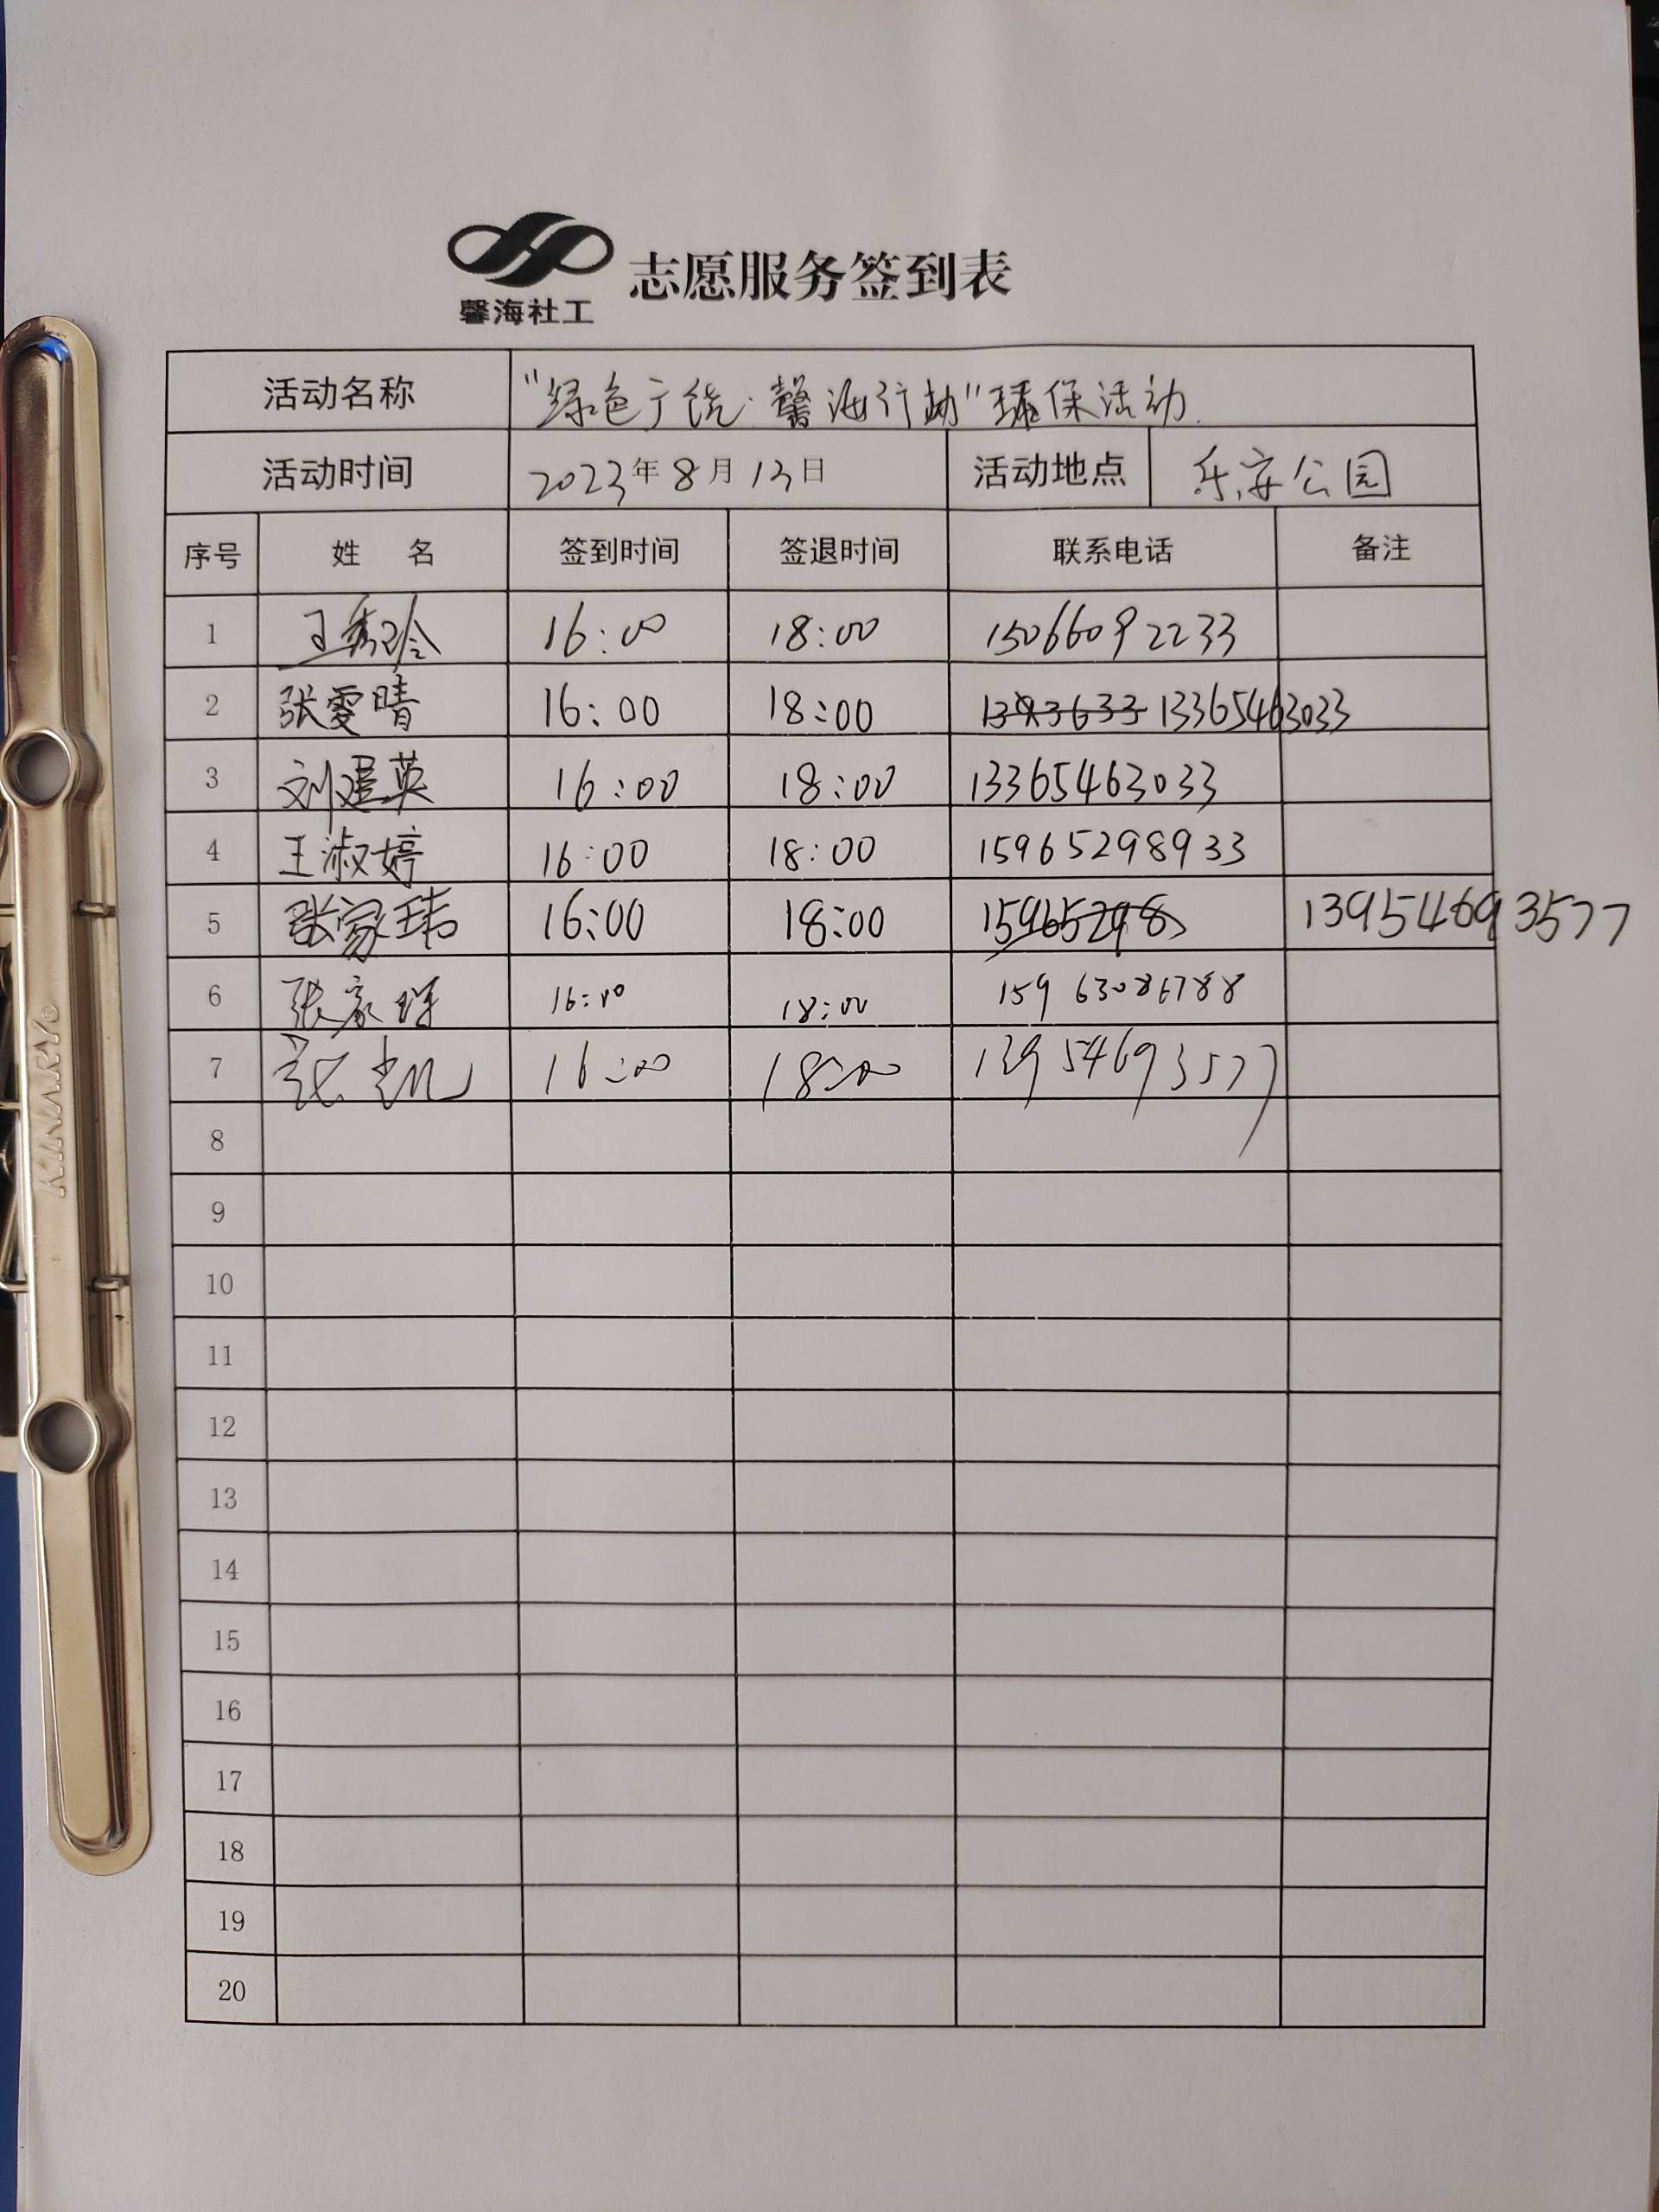 馨海社工
志愿服务签到表
活动名称 "绿色广饶·馨海行动"环保活动
活动时间 2023年8月13日 活动地点 乐安公园
序号 姓 名 签到时间 签退时间 联系电话 备注
1 王秀玲 16:00 18:00 15066092233
2 张雯晴 16:00 18:00 1393633 13365463033
3 刘建英 16:00 18:00 13365463033
4 王淑婷 16:00 18:00 15965298933
5 张家玮 16:00 18:00 15965298 13954693577
6 张家 16:00 18:00 15963086788
7 16:00 18:00 13954693577
8
9
10
11
12
13
14
15
16
17
18
19
20
KINARY